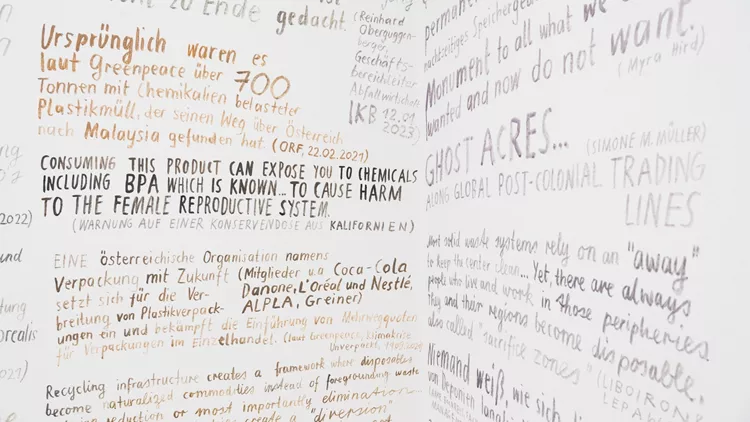 zu Ende gedacht.
(Reinhard
Oberguggen-
berger,
Geschäfts-
bereichleiter
Abfallwirtschaft
IKB 12.01
2023)
Ursprünglich waren es
laut Greenpeace über 700
Tonnen mit Chemikalien belasteter
Plastikmüll, der seinen Weg über Österreich
nach Malaysia gefunden hat (ORF, 22.02.2021)
CONSUMING THIS PRODUCT CAN EXPOSE YOU TO CHEMICALS
INCLUDING BPA WHICH IS KNOWN... TO CAUSE HARM
TO THE FEMALE REPRODUCTIVE SYSTEM.
(WARNUNG AUF EINER KONSERVENDOSE AUS KALIFORNIEN)
2022)
und
2021)
EINE österreichische Organisation namens
Verpackung mit Zukunft (Mitglieder u.a Coca-Cola
Danone, L'Oréal und Nestlé,
ALPLA, Greiner)
setzt sich für die Ver-
breitung von Plastikverpack-
ungen ein und bekämpft die Einführung von Mehrwegquoten
für Verpackungen im Einzelhandel. (laut Greenpeace,
Recycling infrastructure creates a framework where disposables
become naturalized commodities instead of foregrounding waste
reduction or most importantly elimination
create a "diversion"
permanent
Monument to all what we
wanted and now do not want.
(Myra Hird)
GHOST ACRES... (SIMONE M. MÜLLER)
ALONG GLOBAL POST-COLONIAL TRADING
LINES
Most solid waste systems rely on an "away"
to keep the center clean... Yet, there are always
people who live and work in those peripheries.
They and their regions become disposable,
also called "sacrifice zones" (LIBOIRON &
LEPAWSKY
Niemand weiß, wie sich die
von Deponien langfristig